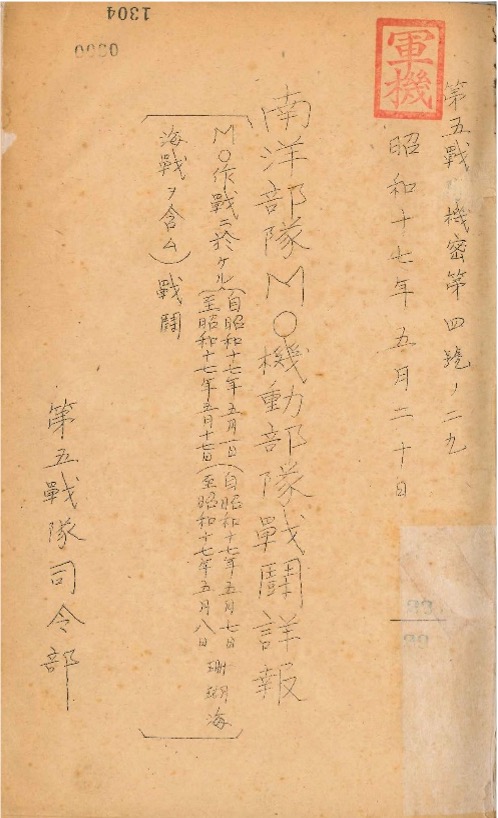 軍機
第五戰機密第四號ノ二九
昭和十七年五月二十日
南洋部隊MO機動部隊戰鬪詳報
MO作戰ニ於ケル(自昭和十七年五月一日至昭和十七年五月十七日)(自昭和十七年五月七日至昭和十七年五月八日珊瑚海
海戰ヲ含ム)戰鬪
第五戰隊司令部
1304
0000